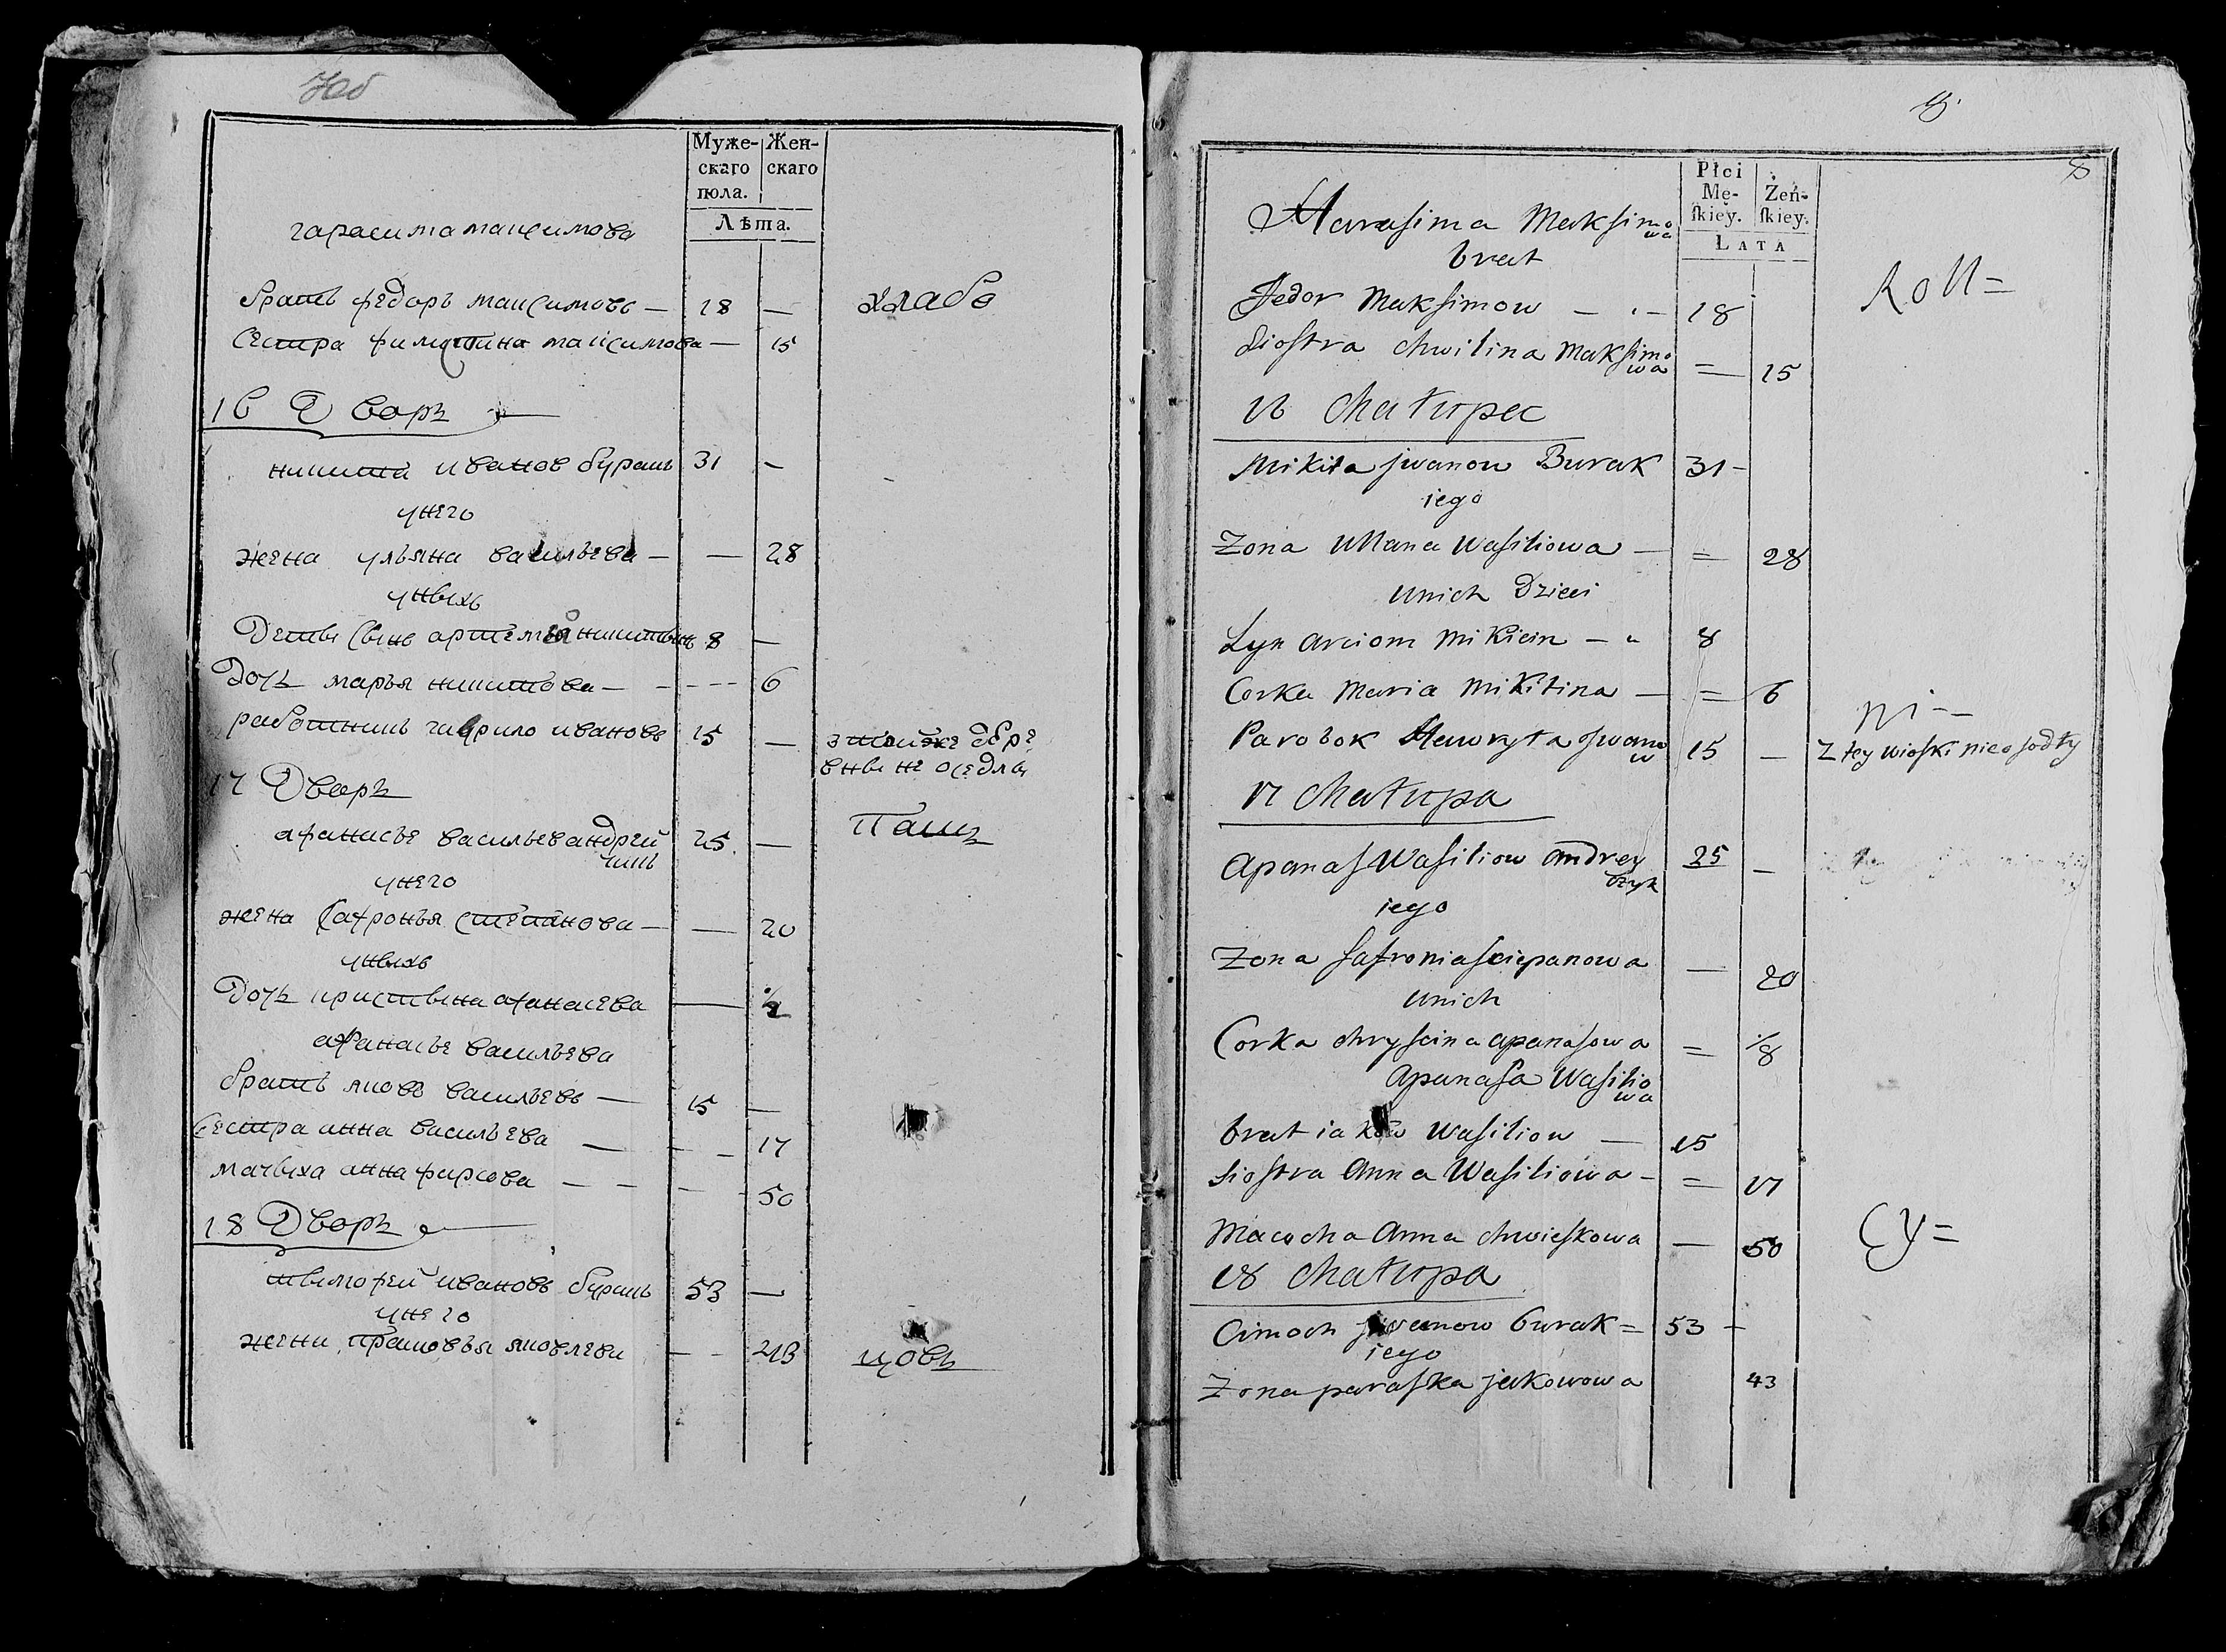 Муже-
скаго
пола.
Жен-
скаго
Лѣта.
гарасима максимова
братъ федоръ максимовъ — 18 —
сестра максимова — 15
хлабо
16 Дворъ
никита иванов буракъ 31 —
унего
жена ульяна васильева — — 28
унихъ
дети сынъ артемей никитинъ 8 —
дочь марья никитова — 6
работникъ гаврило ивановъ 15 —
з тойже дере
вни не оседлы
17 Дворъ
афанасье васильев андрей
чикъ 25 —
Панъ
унего
жена сафронья степанова — — 20
унихъ
дочь кристина афанасева —
афанасье васильева
братъ яковъ васильевъ — 15 —
сестра анна васильева — 17
мачиха анна фирсова — — 50
18 Дворъ
тимофей ивановъ буракъ 53 —
унего
жена прасковья яковлева — 43
цовъ
Płci
Mę-
ſkiey.
Żeń-
ſkiey.
LATA
8
Harasima Maksimo
wa
brat
Fedor Maksimow — 18
Siostra Chwilina Maksimo
wa = 15
16 Chałupa
Mikita Jwanow Burak 31 —
iego
Zona Ullana Wasiliowa — = 28
unich Dzieci
Syn Arciom Mikicin — 8
Corka Maria Mikitina — = 6
Parobok Hawryła Jwano
w 15 —
Z tey wioski nieosodły
17 Chałupa
Apanas Wasiliow Andrey
czyk 25 —
iego
Zona Safronia Sciepanowa — 20
unich
Corka Chryscina Apanasowa = 1/8
Apanasa Wasilio
wa
brat iakow Wasiliow — 15
Siostra Anna Wasiliowa — = 17
Macocha Anna Chwieskowa — 50
18 Chałupa
Cimoch Jwanow burak = 53 —
iego
Zona paraska jakowowa 43